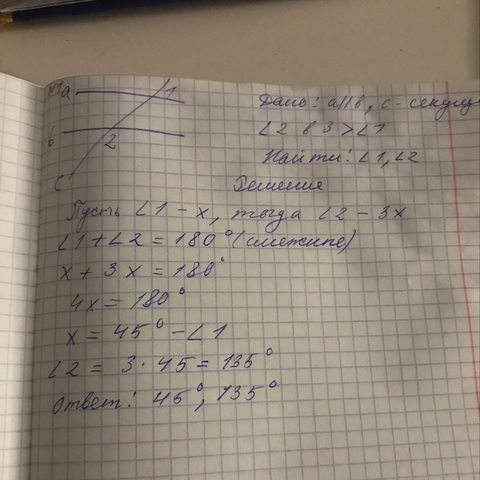 а 1
Дано: a||b, c - секущ
b 2
∠2 в 3 > ∠1
Найти: ∠1, ∠2
c
Решение
Пусть ∠1 - x, тогда ∠2 - 3x
∠1 + ∠2 = 180° (смежные)
x + 3x = 180°
4x = 180°
x = 45° - ∠1
∠2 = 3 · 45 = 135°
Ответ: 45°, 135°